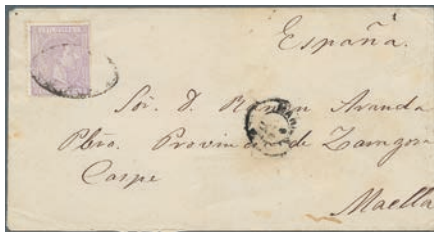 España.
Sor. D. Ramon Aranda
Pbro. Provincia de Zaragoza
Caspe
Maella